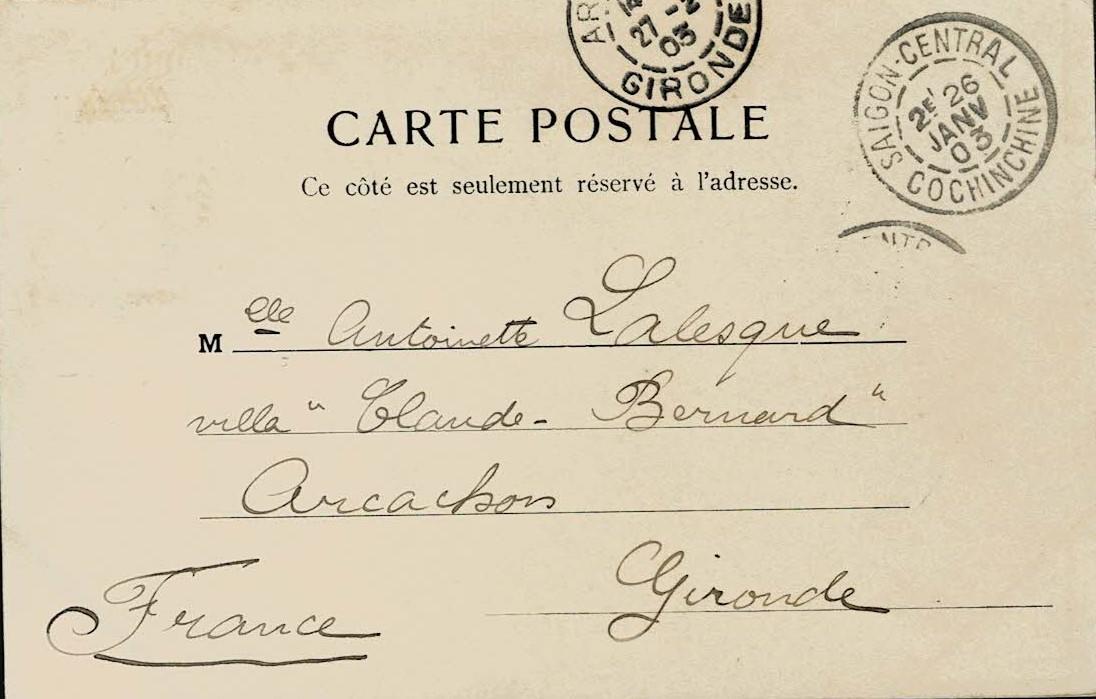 27
03
GIRONDE
SAIGON-CENTRAL
2E 26
JANV
03
COCHINCHINE
CARTE POSTALE
Ce côté est seulement réservé à l'adresse.
Melle Antoinette Lalesque
villa "Claude-Bernard"
Arcachon
Gironde
France